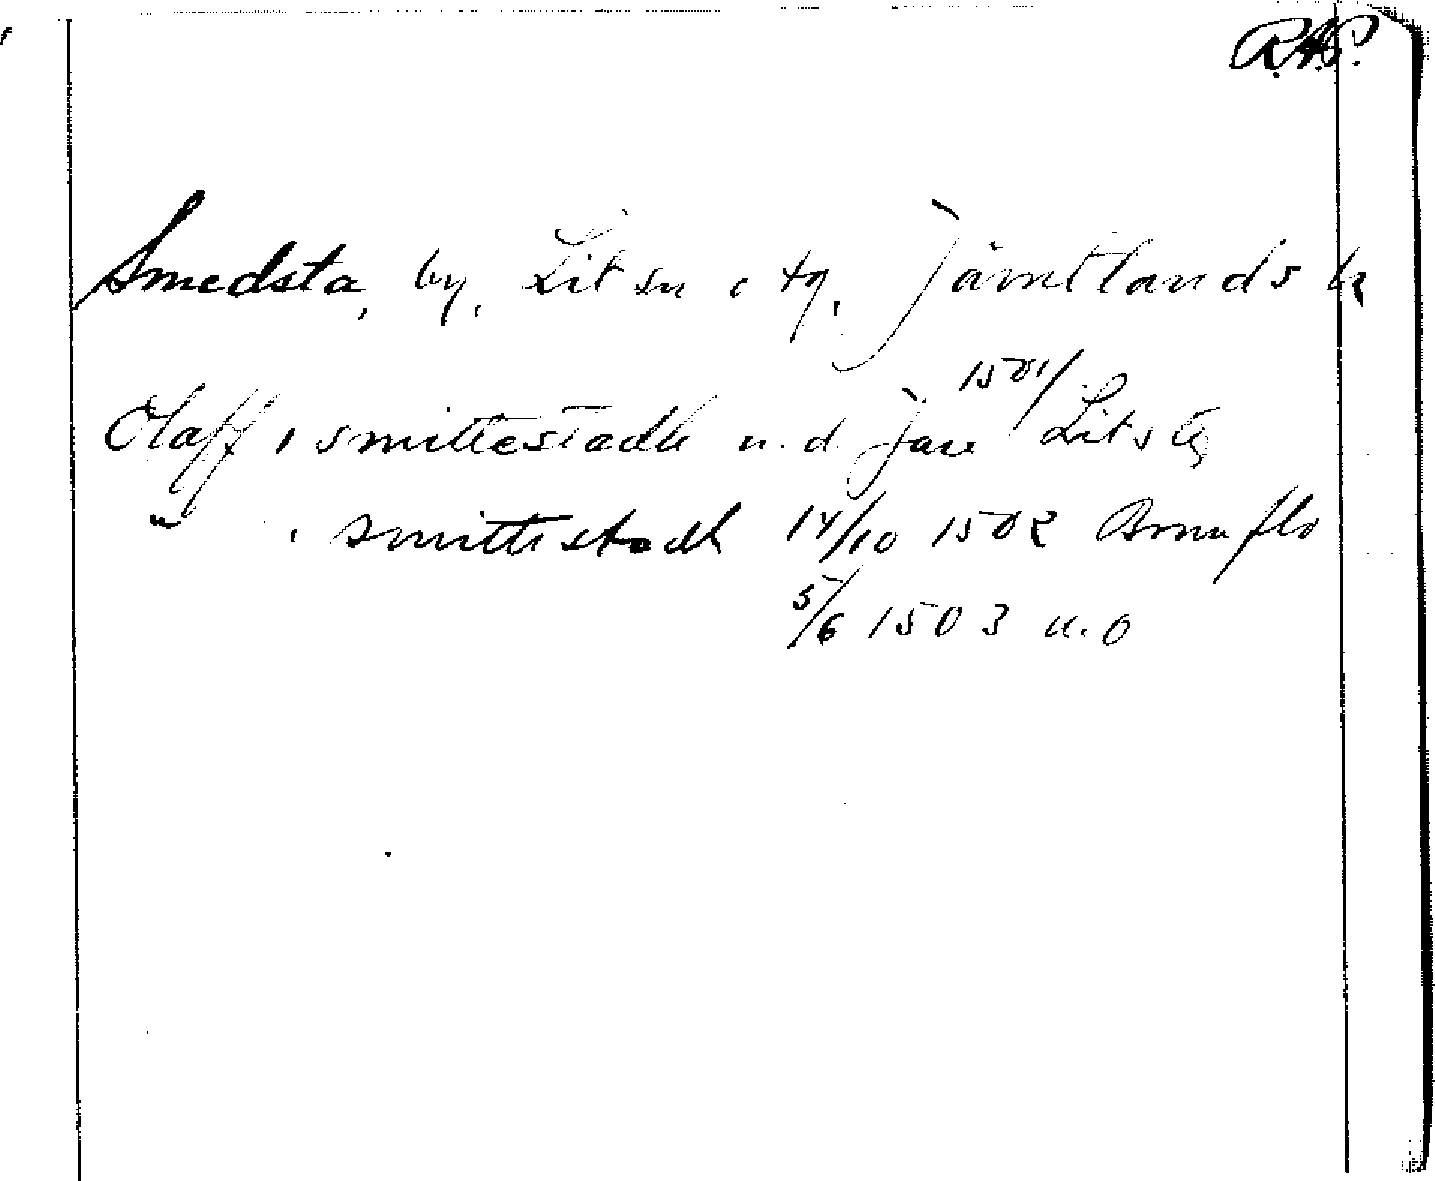 R.A.P.
Smedsta, by, Lit sn o tg, Jämtlands l
Olaff i smittestadh u.d. Jan 1501/ Lits tg
" i smittistadh 14/10 1502 Brunflo
5/6 1503 u.o